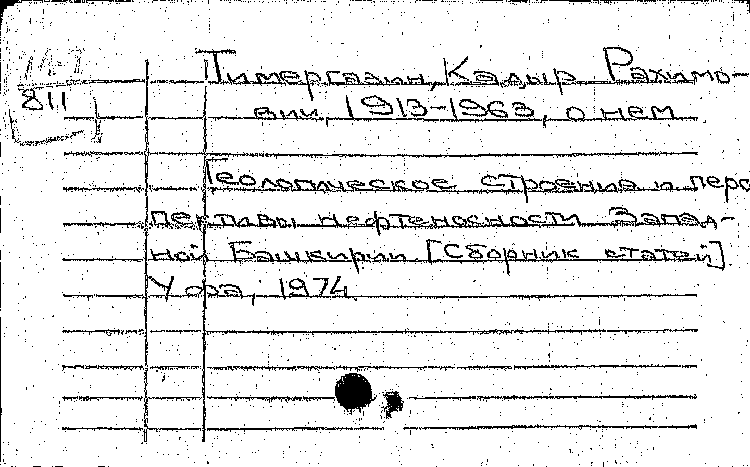 811
Тимергазин, Кадыр Рахимо-
вич, 1913-1963, о нем
Геологическое строение и перс
пективы нефтеносности Запад-
ной Башкирии [Сборник статей]
Уфа, 1974